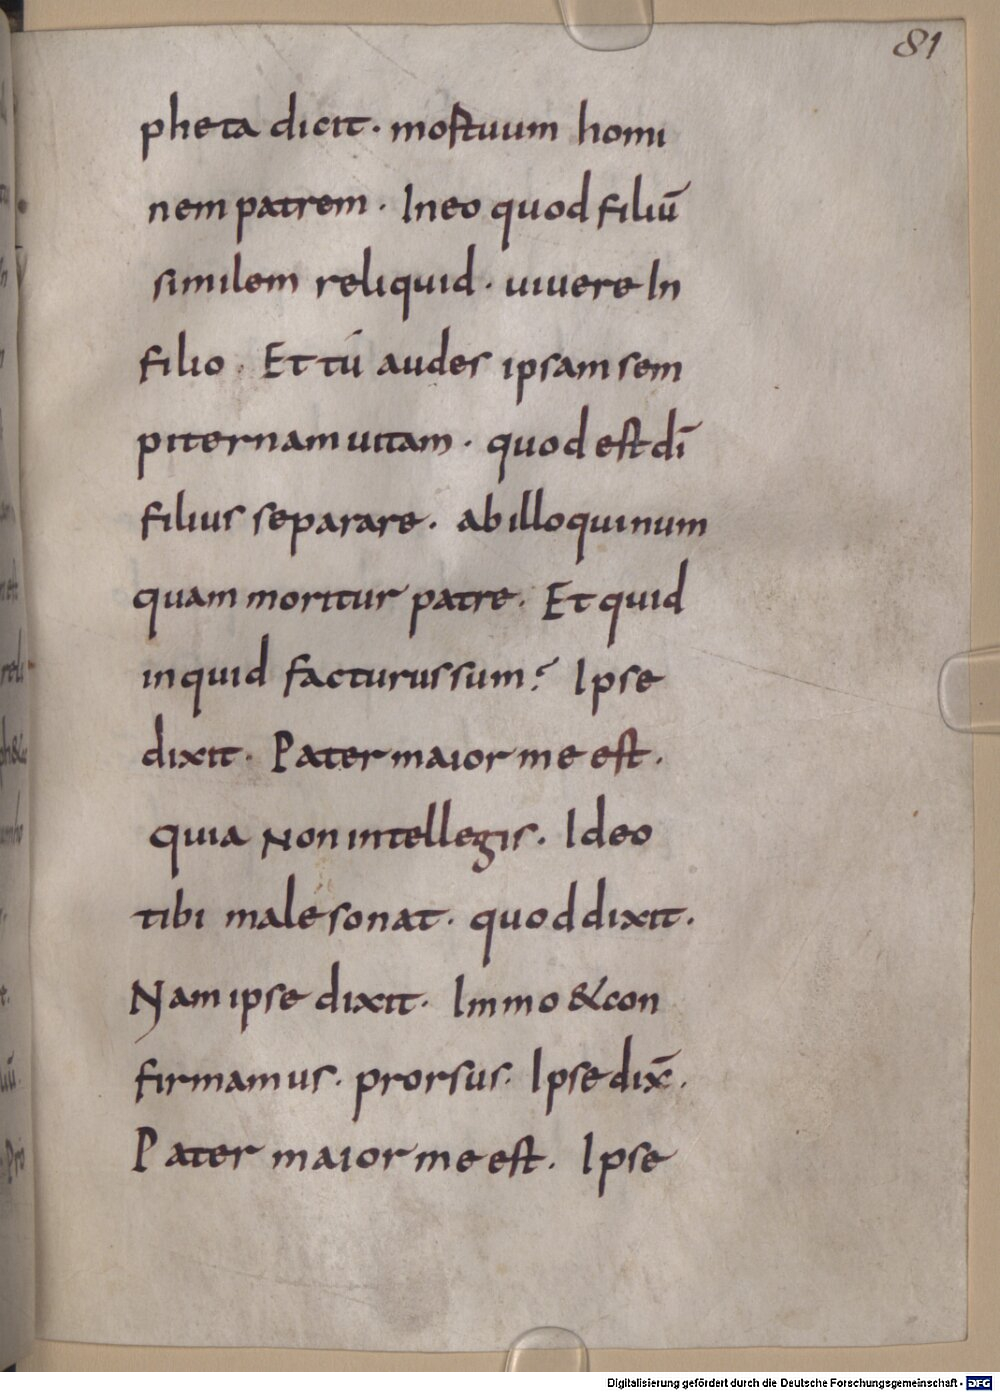 81
pheta dicit · mostuum homi
nem patrem · In eo quod filiū
similem reliquid · uiuere In
filio · Et tú audes ipsam sem
piternam uitam · quod est dī
filius separare · ab illo qui num
quam moritur patre · Et quid
inquid facturus sum? Ipse
dixit · Pater maior me est ·
quia Non intellegis · Ideo
tibi male sonat · quod dixit ·
Nam ipse dixit · Immo & con
firmamus · prorsus · Ipse dix̄ ·
Pater maior me est · Ipse
Digitalisierung gefördert durch die Deutsche Forschungsgemeinschaft - DFG